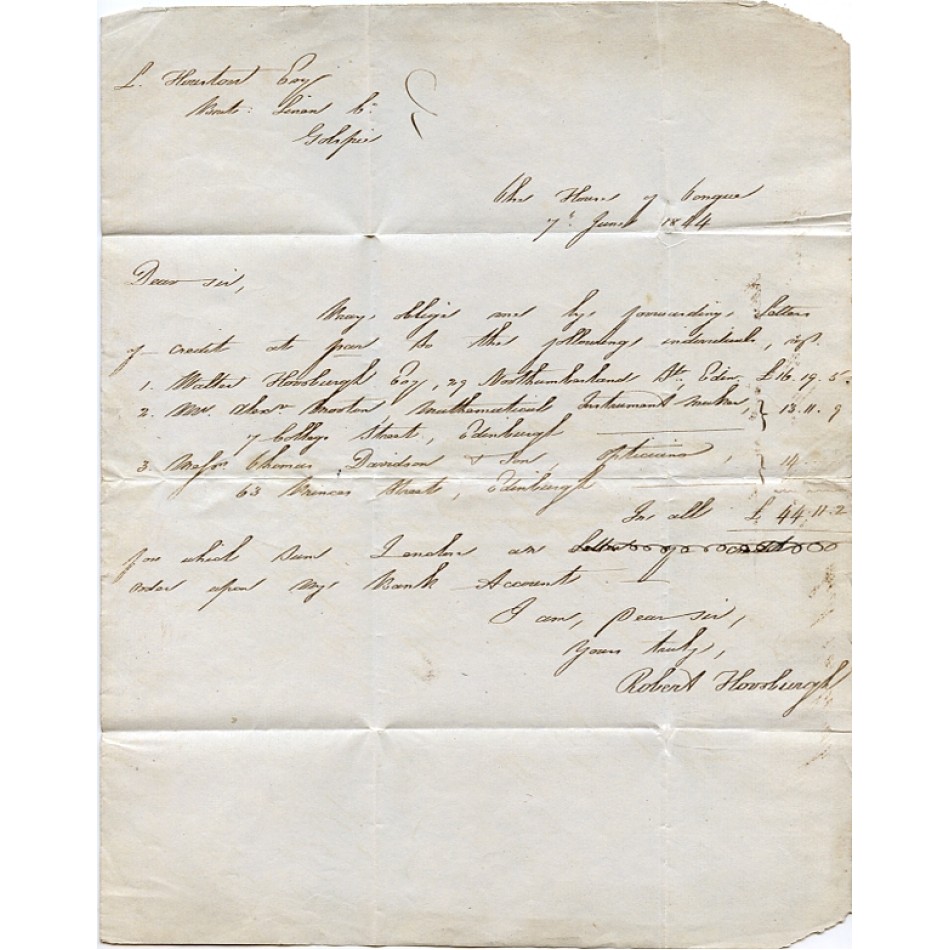 L. Houston Esq
Brit: Linen Co
Golspie
The House of Tongue
7th June 1844
Dear Sir,
May oblige me by forwarding letters
of credit at par to the following individuals,
1. Walter Horsburgh Esq, 29 Northumberland St, Edin. £16.19.5.
2. Mr. Alexr Mathematical Instrument maker, } 13.11.9
7 College Street, Edinburgh
3. Messrs Thomas Davidson & Son, Opticians, } 14
63 Princes Street, Edinburgh
In all £44.11.2
for which sum I enclose an
order upon my Bank Account.
I am, Dear Sir,
Yours truly,
Robert Horsburgh